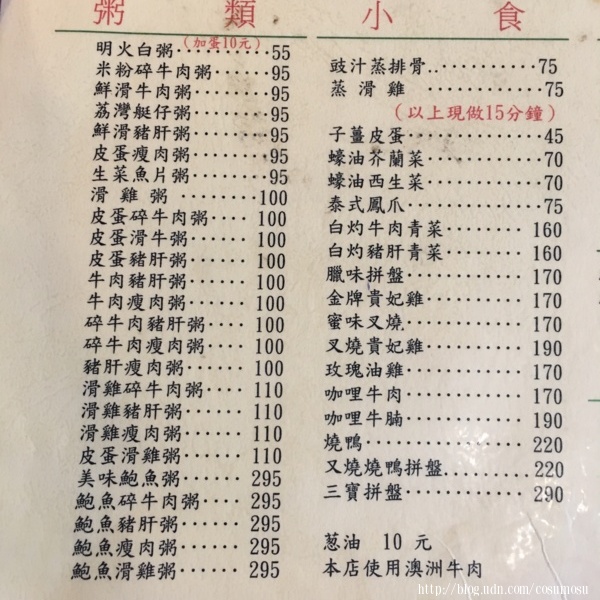 粥類
明火白粥(加蛋10元)··········55
米粉碎牛肉粥·····95
鮮滑牛肉粥·······95
荔灣艇仔粥·······95
鮮滑豬肝粥·······95
皮蛋瘦肉粥·······95
生菜魚片粥·······95
滑雞粥 ········100
皮蛋碎牛肉粥···· 100
皮蛋滑牛粥······ 100
皮蛋豬肝粥······ 100
牛肉豬肝粥······ 100
牛肉瘦肉粥······ 100
碎牛肉豬肝粥···· 100
碎牛肉瘦肉粥···· 100
豬肝瘦肉粥······ 100
滑雞碎牛肉粥···· 110
滑雞豬肝粥······ 110
滑雞瘦肉粥······ 110
皮蛋滑雞粥······ 110
美味鮑魚粥······ 295
鮑魚碎牛肉粥···· 295
鮑魚豬肝粥······ 295
鮑魚瘦肉粥······ 295
鮑魚滑雞粥······ 295
小食
豉汁蒸排骨..·········75
蒸滑雞 ···········75
(以上現做15分鐘)
子薑皮蛋············45
蠔油芥蘭菜··········70
蠔油西生菜··········70
泰式鳳爪············75
白灼牛肉青菜······· 160
白灼豬肝青菜······· 160
臘味拼盤··········· 170
金牌貴妃雞········· 170
蜜味叉燒··········· 170
叉燒貴妃雞········· 190
玫瑰油雞··········· 170
咖哩牛肉··········· 170
咖哩牛腩··········· 190
燒鴨·············· 220
叉燒燒鴨拼盤.........220
三寶拼盤··········· 290
蔥油 10 元
本店使用澳洲牛肉
http://blog.udn.com/cosmmosu